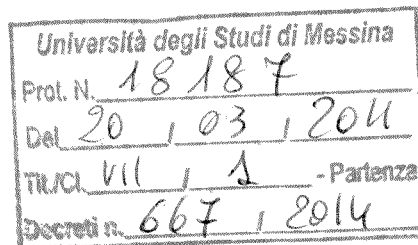 Università degli Studi di Messina
Prot. N. 18187
Del 20 / 03 / 2014
Tit./Cl. VII / 1 - Partenza
Decreti n. 667 / 2014